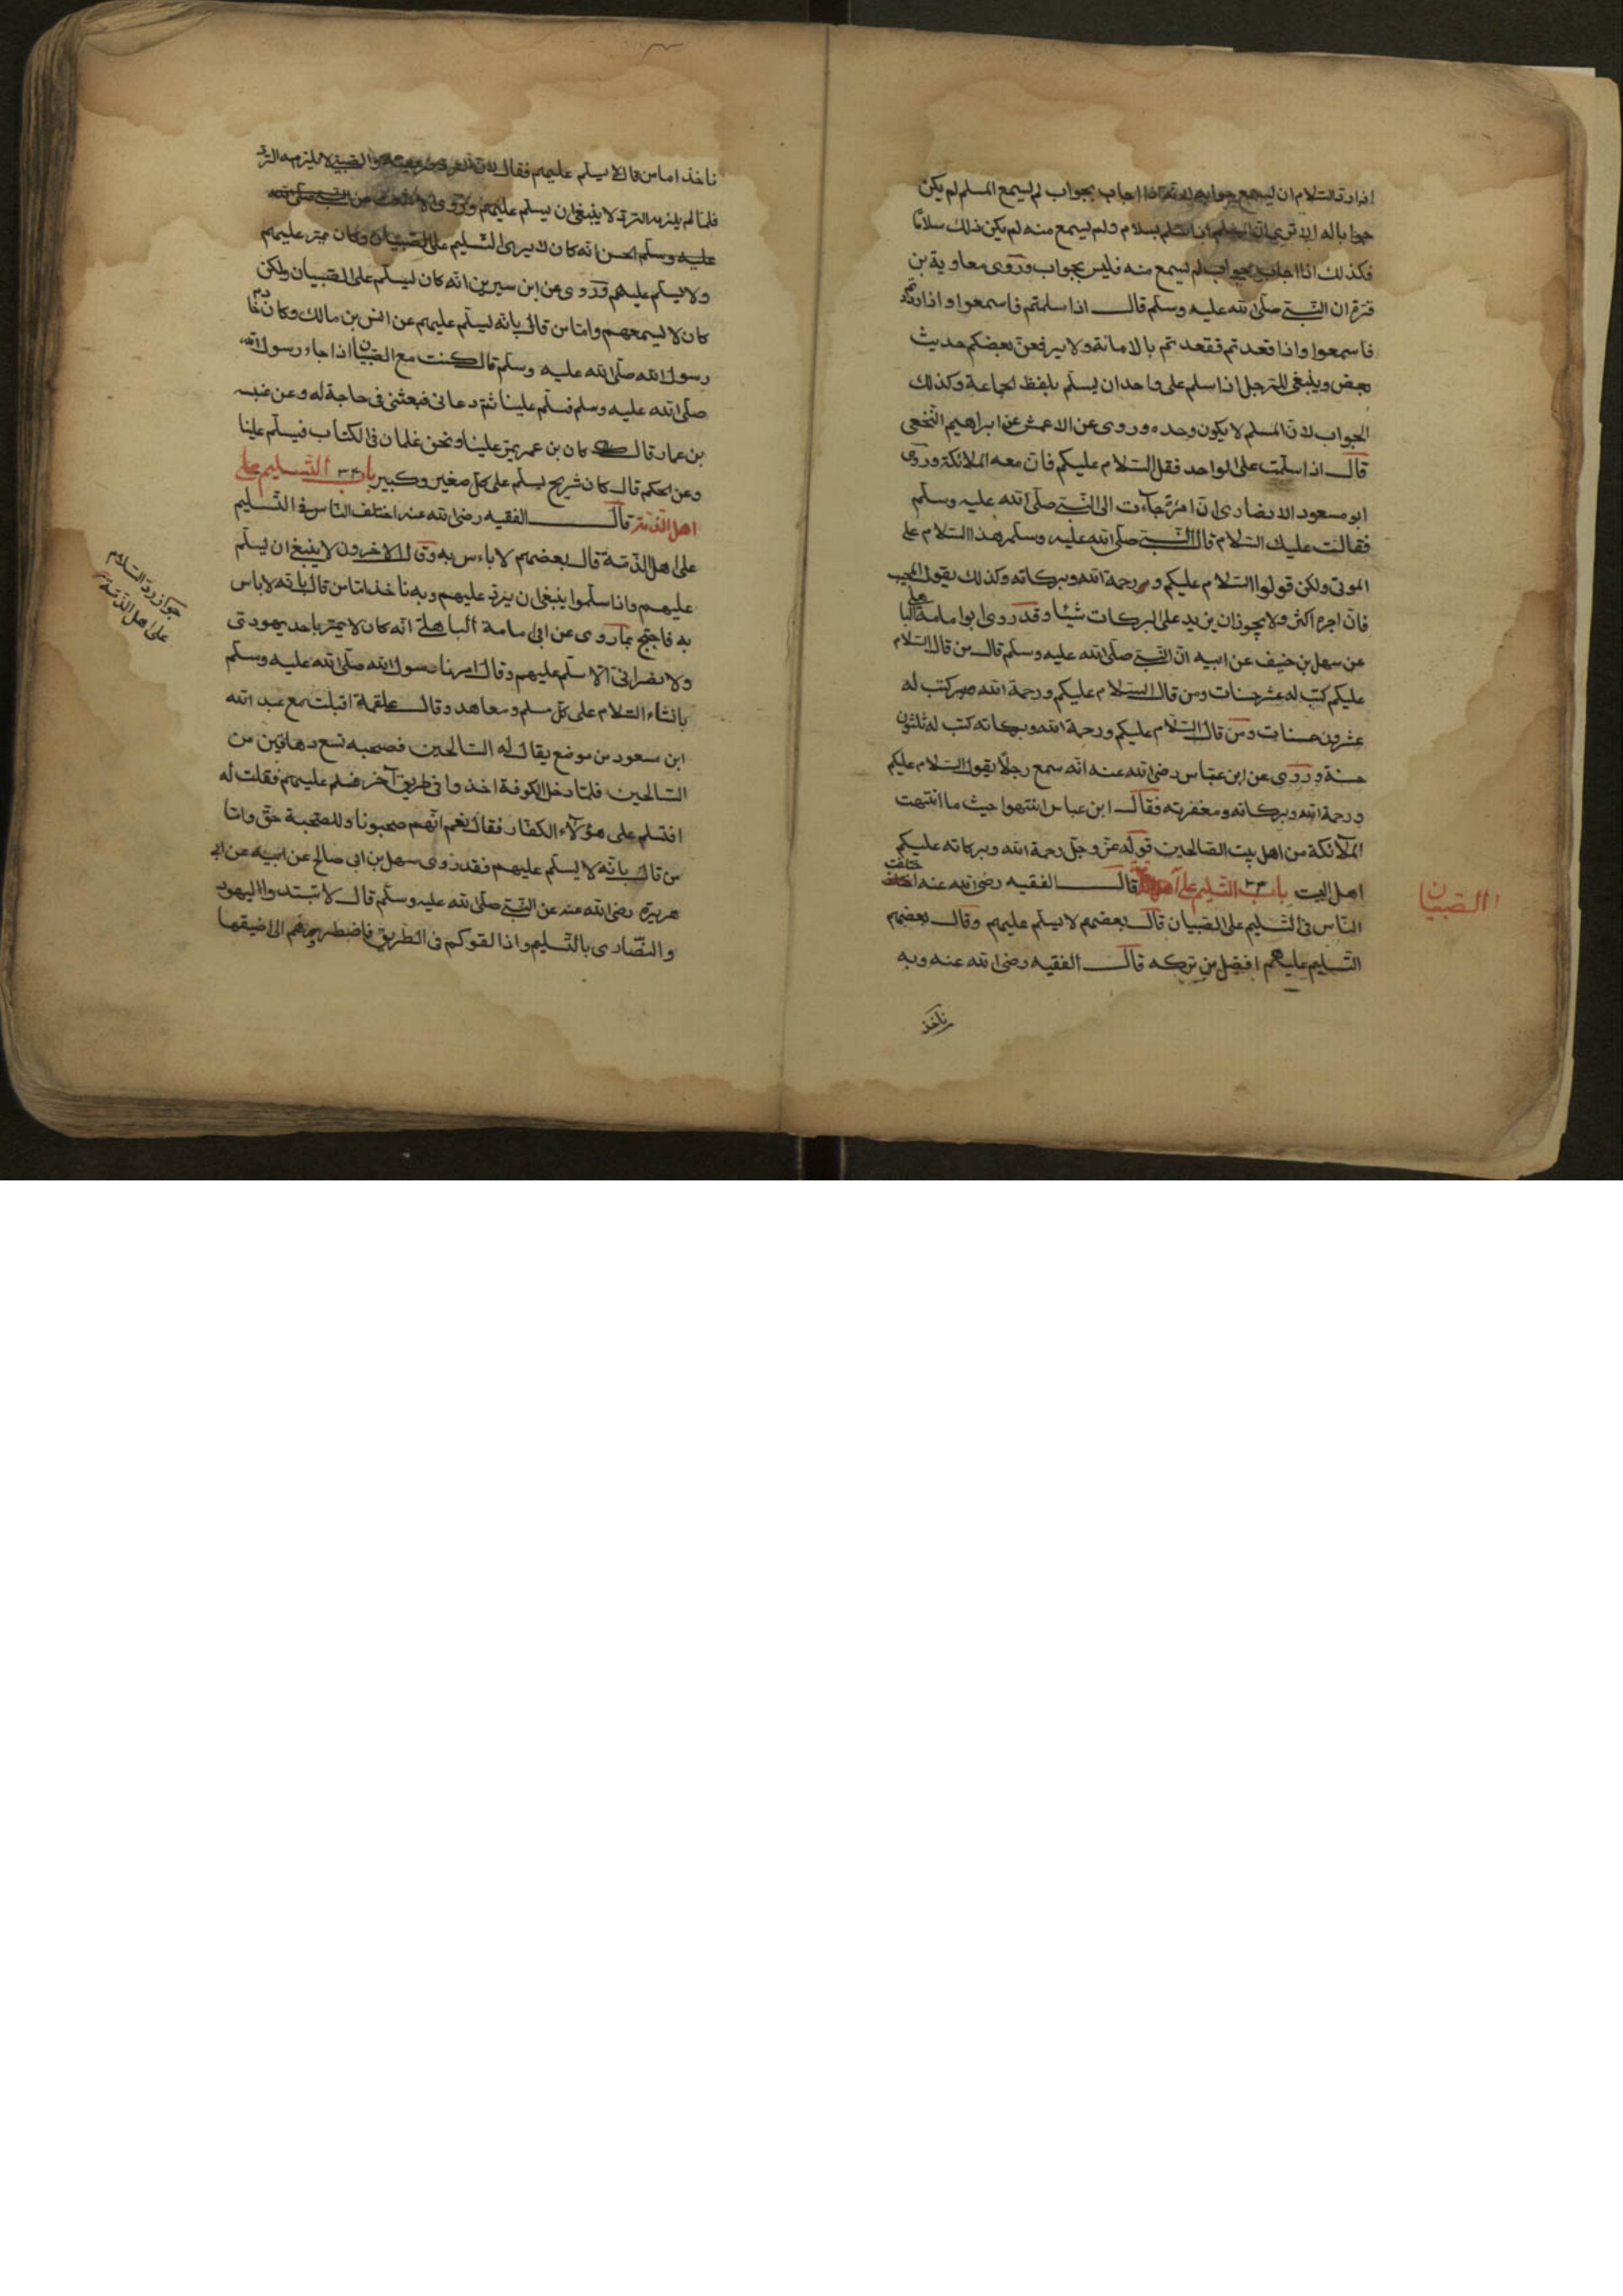 اذا رد السلام ان يسمع جوابه لانه اذا اجاب بجواب لم يسمع المسلم لم يكن
جوابا له الا ترى ان المسلم اذا سلم بسلام ولم يسمع منه لم يكن ذلك سلاما
فكذلك اذا اجاب بجواب لم يسمع منه فليس بجواب وروى معاوية بن
قرة ان النبي صلى الله عليه وسلم قال اذا سلمتم فاسمعوا واذا رددتم
فاسمعوا واذا قعدتم فقعدتم بالامانة ولا يرفعن بعضكم حديث
بعض وينبغي للرجل اذا سلم على واحد ان يسلم بلفظ الجماعة وكذلك
الجواب لان المسلم لا يكون وحده وروى عن الاعمش عن ابراهيم النخعي
قال اذا سلمت على الواحد فقل السلام عليكم فان معه الملائكة وروى
ابو مسعود الانصارى ان امرئة جآءت الى النبي صلى الله عليه وسلم
فقالت عليك السلام قال النبي صلى الله عليه وسلم هذا السلام على
الموتى ولكن قولوا السلام عليكم ورحمة الله وبركاته وكذلك يقول المجيب
فان اجره اكثر ولا يجوز ان يزيد على البركات شيئا وقد روى ابوا مامة البا هلى
عن سهل بن حنيف عن ابيه ان النبي صلى الله عليه وسلم قال من قال السلام
عليكم كتب له عشر حسنات ومن قال السلام عليكم ورحمة الله كتب له
عشرون حسنات ومن قال السلام عليكم ورحمة الله وبركاته كتب له ثلثون
حسنة وروى عن ابن عباس رضى الله عنه انه سمع رجلا يقول السلام عليكم
ورحمة الله وبركاته ومغفرته فقال ابن عباس انتهوا حيث ما انتهت
الملآئكة من اهل بيت الصالحين قوله عز وجل رحمة الله وبركاته عليكم
اهل البيت باب ٣٣ التسليم على قال الفقيه رضى الله عنه اختلف
الصبيان
الناس فى التسليم على الصبيان قال بعضهم لا يسلم عليهم وقال بعضهم
التسليم عليهم افضل من تركه قال الفقيه رضى الله عنه وبه
ناخذ
ناخذ اما من قال لا يسلم عليهم فقال لان الرد والصبي لا يلزمه الرد
فلما لم يلزمه الرد لا ينبغى ان يسلم عليهم وروى
عليه وسلم الحسن انه كان لا يرى التسليم على الصبيان وكان يمر عليهم
ولا يسلم عليهم وروى عن ابن سيرين انه كان يسلم على الصبيان ولكن
كان لا يسمعهم واما من قال بانه يسلم عليهم عن انس بن مالك وكان خادم
رسول الله صلى الله عليه وسلم قال كنت مع الصبيان اذا جاء رسول الله
صلى الله عليه وسلم فسلم علينا ثم دعانى فبعثنى فى حاجة له وعن عنبسه
بن عمار قال كان بن عمر يمر علينا ونحن غلمان فى الكتاب فيسلم علينا
وعن الحكم قال كان شريح يسلم على كل صغير وكبير باب ٣٤ التسليم على
اهل الذمة قال الفقيه رضى الله عنه اختلف الناس فى التسليم
على اهل الذمة قال بعضهم لا باءس به وقال الاخرون لا ينبغى ان يسلم
عليهم واذا سلموا ينبغى ان يرد عليهم وبه ناخذ اما من قال بانه لا باس
به فاحتج بما روى عن ابى امامة الباهلى انه كان لا يمر باحد يهودى
ولا نصرانى الا سلم عليهم وقال امرنا رسول الله صلى الله عليه وسلم
بافشاء السلام على كل مسلم ومعاهد وقال علقمة اقبلت مع عبد الله
ابن مسعود من موضع يقال له السالحين فصحبه تسع دهاقين من
السالحين فلما دخل الكوفة اخذوا فى طريق آخر فسلم عليهم فقلت له
افتسلم على هؤلآء الكفار فقال نعم انهم صحبونا وللصحبة حق واما
من قال بانه لا يسلم عليهم فقد روى سهل بن ابى صالح عن ابيه عن ابى
هريرة رضى الله عنه عن النبي صلى الله عليه وسلم قال لا تبتدوا اليهود
والنصارى بالتسليم واذا لقوكم فى الطريق فاضطروهم الى اضيقها
جواز رد السلام
على اهل الذمة